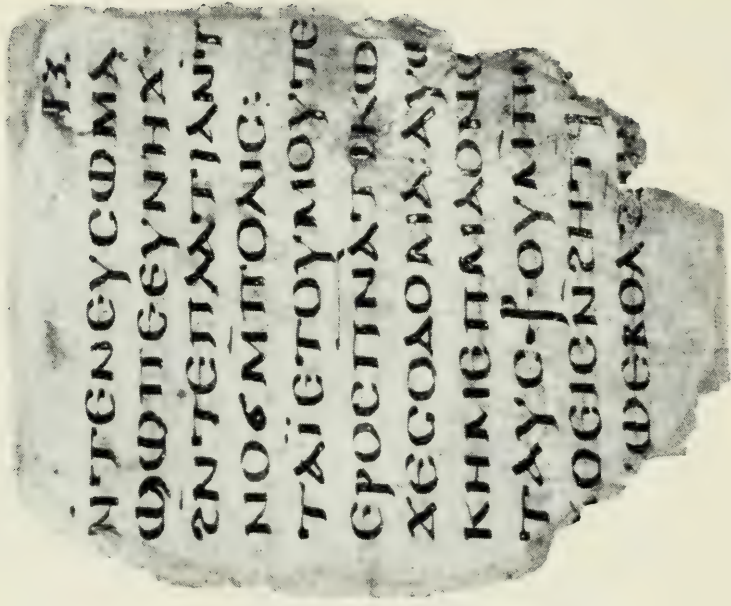 ⲛ̇ⲧⲉⲛⲉⲩⲥⲱⲙⲁ
ϣⲱⲡⲉⲉⲩⲛⲏϫ·
ϩⲛ̄ⲧⲉⲡⲗⲁⲧⲓⲁⲛ̄ⲧ
ⲛⲟϭⲙ̄ⲡⲟⲗⲓⲥ:
ⲧⲁⲓ̈ⲉⲧⲟⲩⲙⲟⲩⲧⲉ
ⲉⲣⲟⲥⲡ̄ⲛ̄ⲁ̄ⲧⲓⲕⲱ
ϫⲉⲥⲟⲇⲟⲙⲁ:ⲁⲩⲱ
ⲕⲏⲙⲉⲡⲙⲁⲟⲛⲉ
ⲧⲁⲩⲥ⳨ⲟⲩⲙ̄ⲡⲉ
ϫⲟⲉⲓⲥⲛ̄ϩⲏⲧ
ⲱⲉⲃⲟⲗϩ